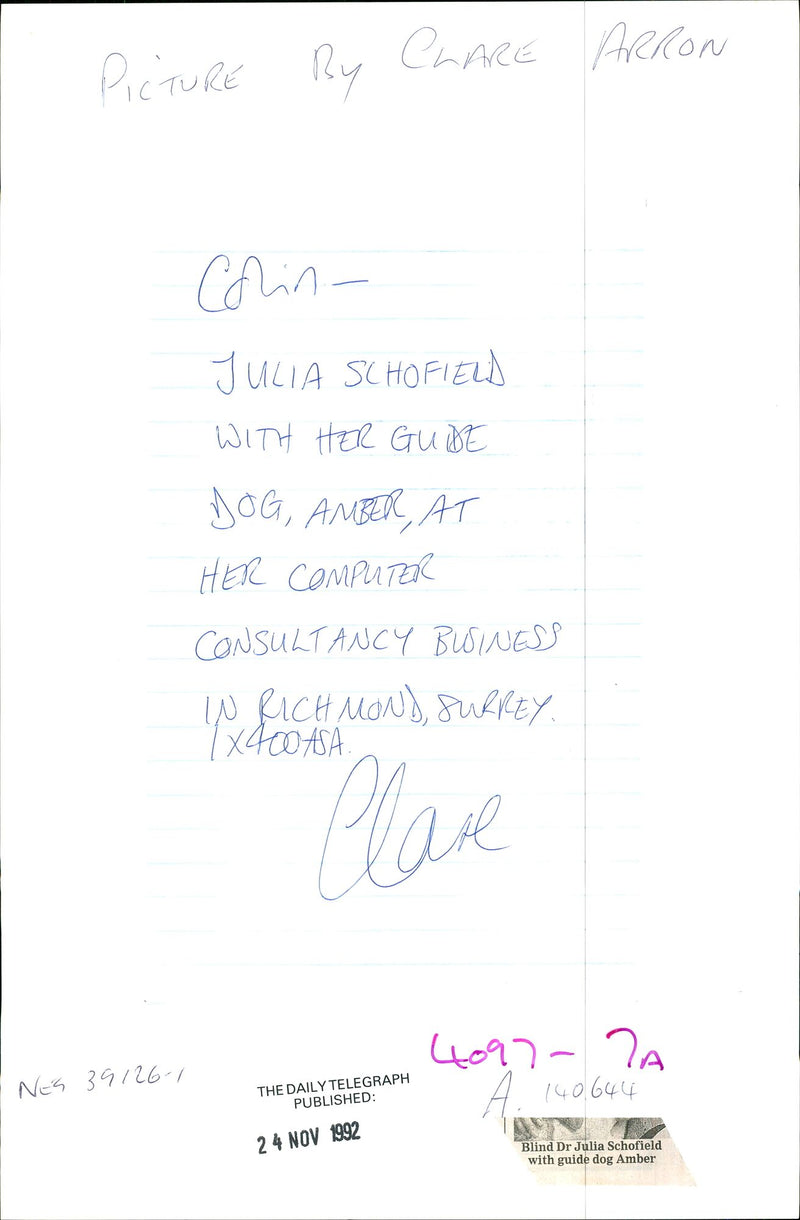 PICTURE BY CLARE ARRON
Colin—
JULIA SCHOFIELD
WITH HER GUIDE
DOG, AMBER, AT
HER COMPUTER
CONSULTANCY BUSINESS
IN RICHMOND, SURREY.
1X400ASA.
Clare
4097- 7A
NEG 39126-1
A. 140.644
THE DAILY TELEGRAPH
PUBLISHED:
24 NOV 1992
Blind Dr Julia Schofield
with guide dog Amber